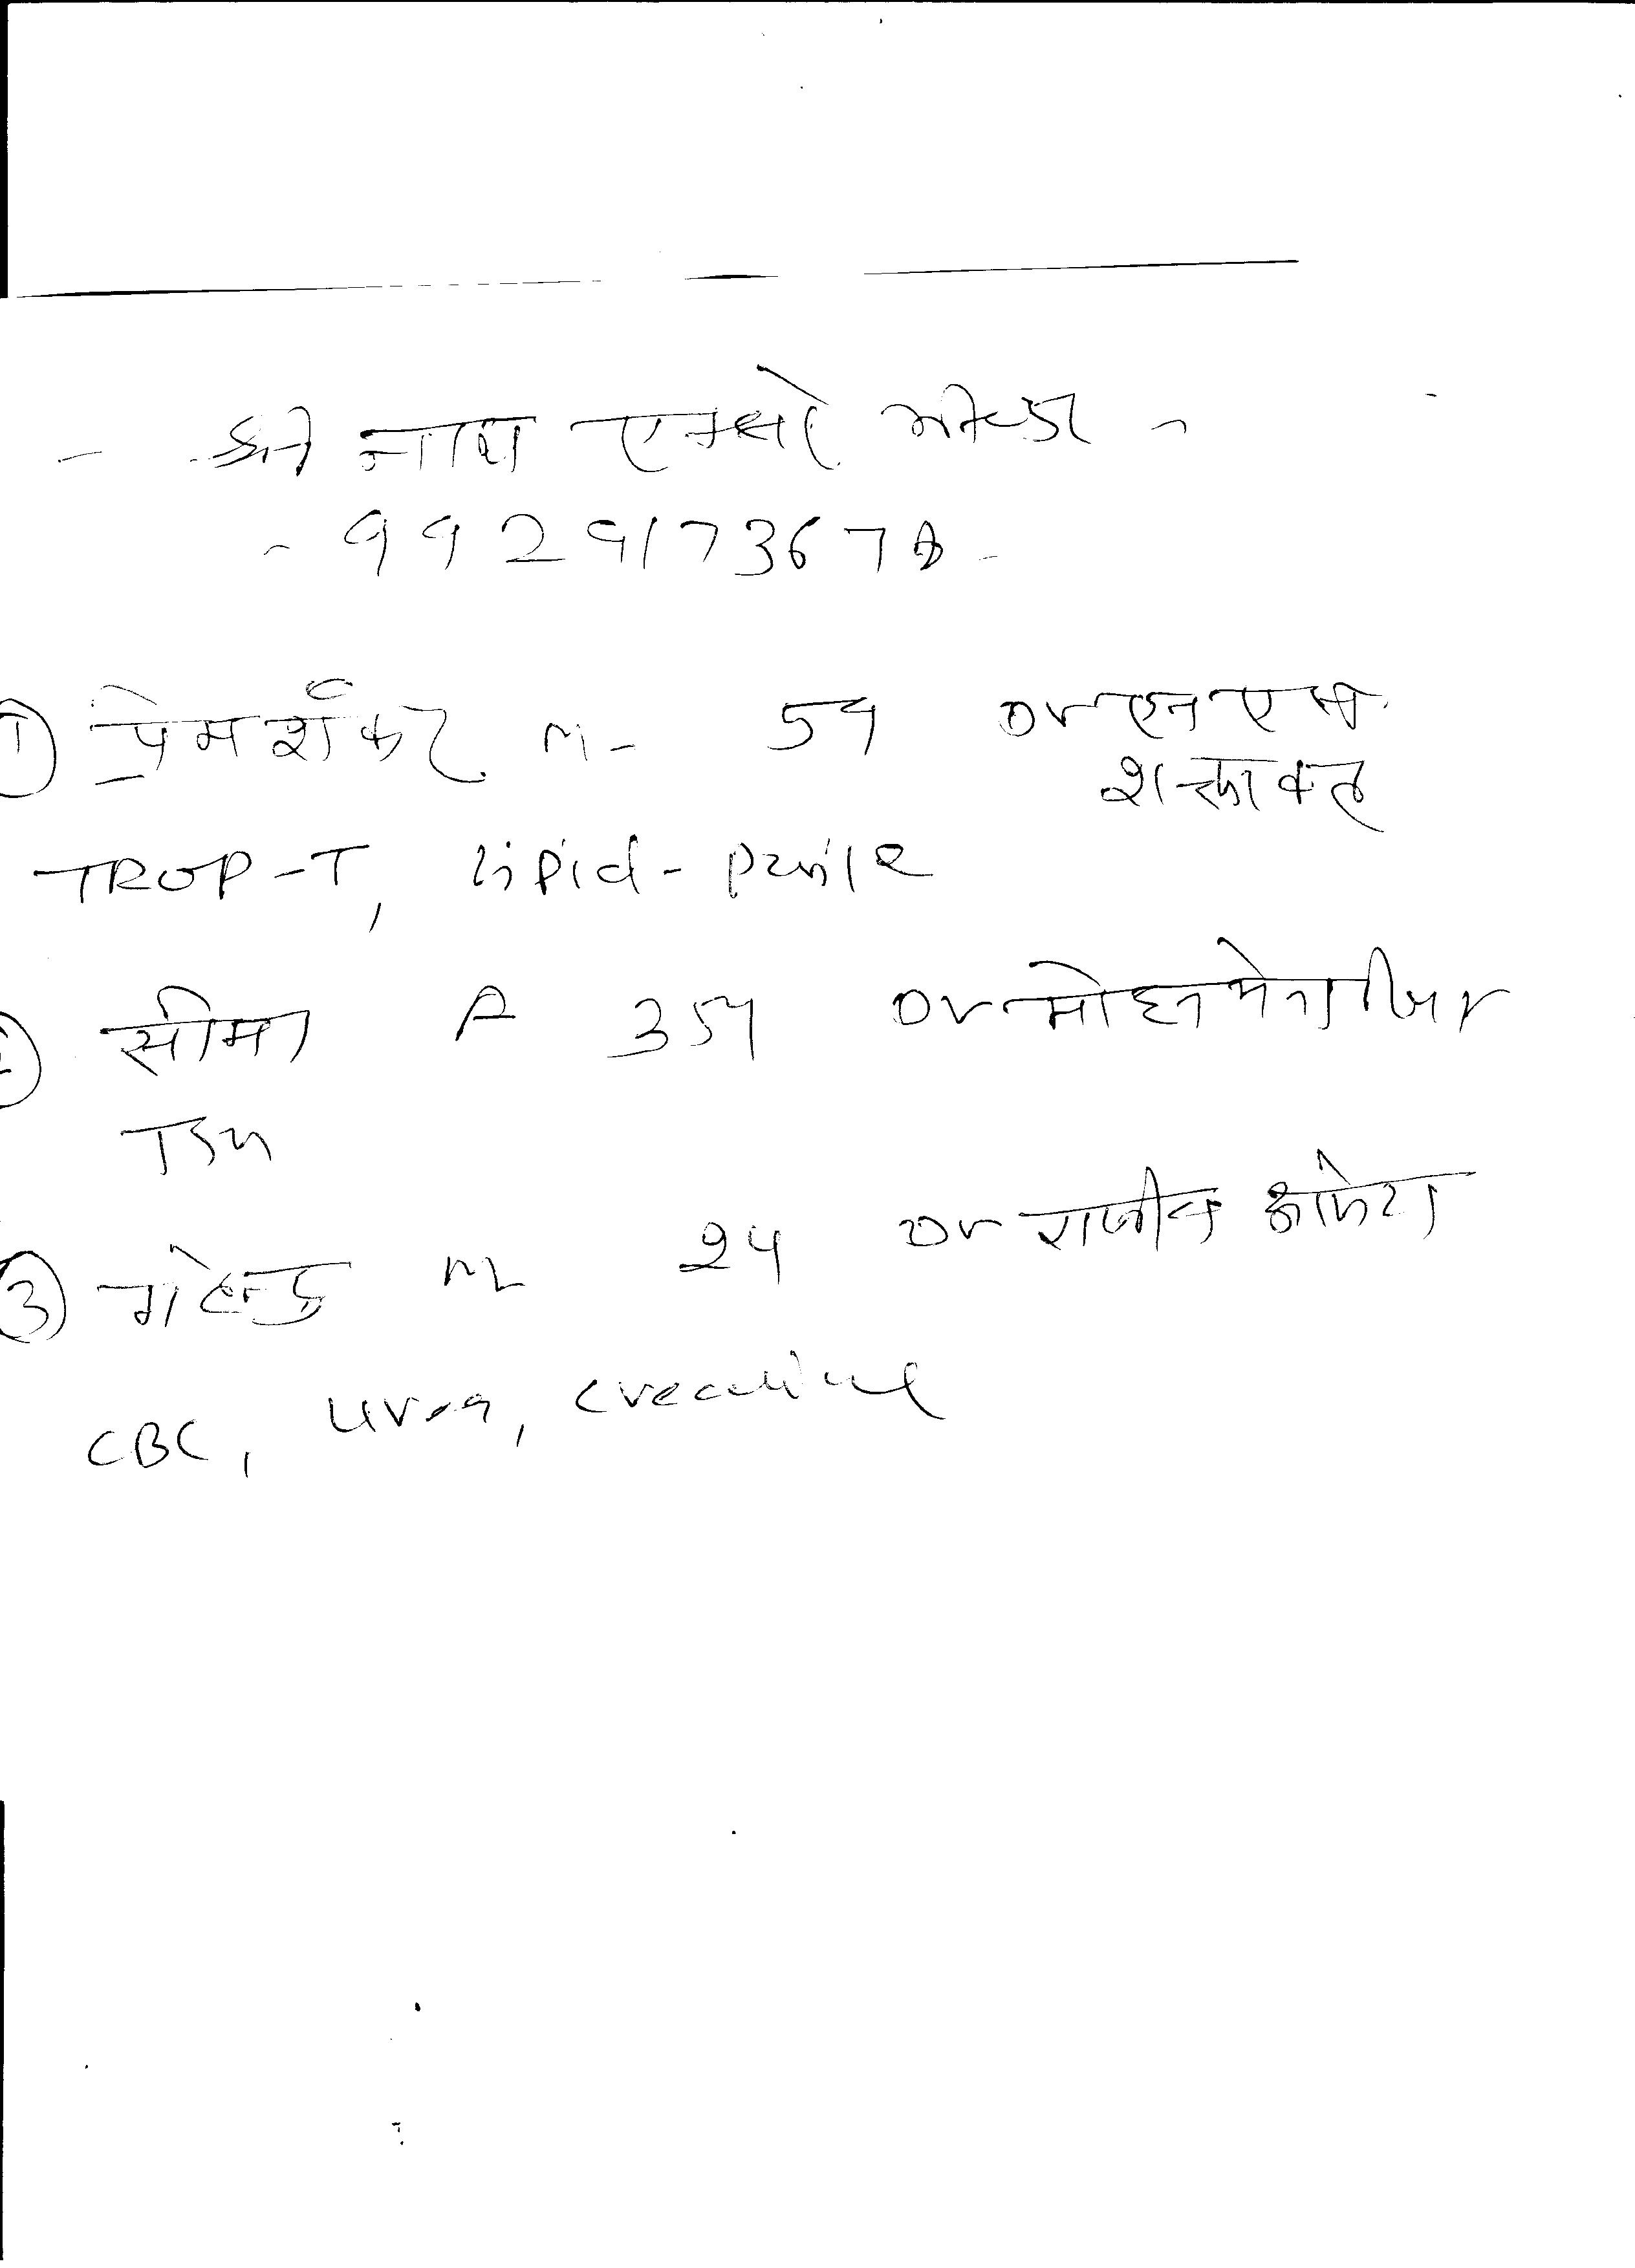 श्री नाथ एक्सरे भीण्डर
992917367
① प्रेम शंकर M- 54 Dr एन एस
शक्तावत
TROP-T, lipid-profile
② सीमा F 35y Dr मोहन
TSH
③ M 24 Dr राजीव
CBC, Urea, Creatinine